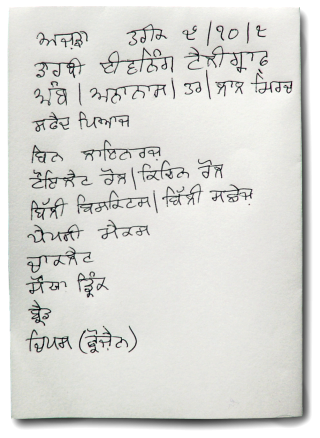 ਅਜ਼ਰਾ ਤਰੀਕ ੫/੧੦/੨
ਡਾਰਬੀ ਈਵਨਿੰਗ ਟੈਲੀਗ੍ਰਾਫ਼
ਅੰਬ | ਅਨਾਨਾਸ | ਤਰ | ਲਾਲ ਮਿਰਚ
ਸਫੈਦ ਪਿਆਜ
ਬਿਨ ਲਾਇਨਰਜ਼
ਟੌਇਲੈਟ ਰੋਲ | ਕਿਚਿਨ ਰੋਲ
ਬਿੱਲੀ ਬਿਸਕਿਟਸ | ਬਿੱਲੀ ਸਛੇਜ਼
ਪੈਪਸੀ ਮੈਕਸ
ਚਾਕਲੈਟ
ਸੌਖਾ ਡ੍ਰਿੰਕ
ਬ੍ਰੈਡ
ਚਿਪਸ (ਫ੍ਰੋਜ਼ੈਨ)